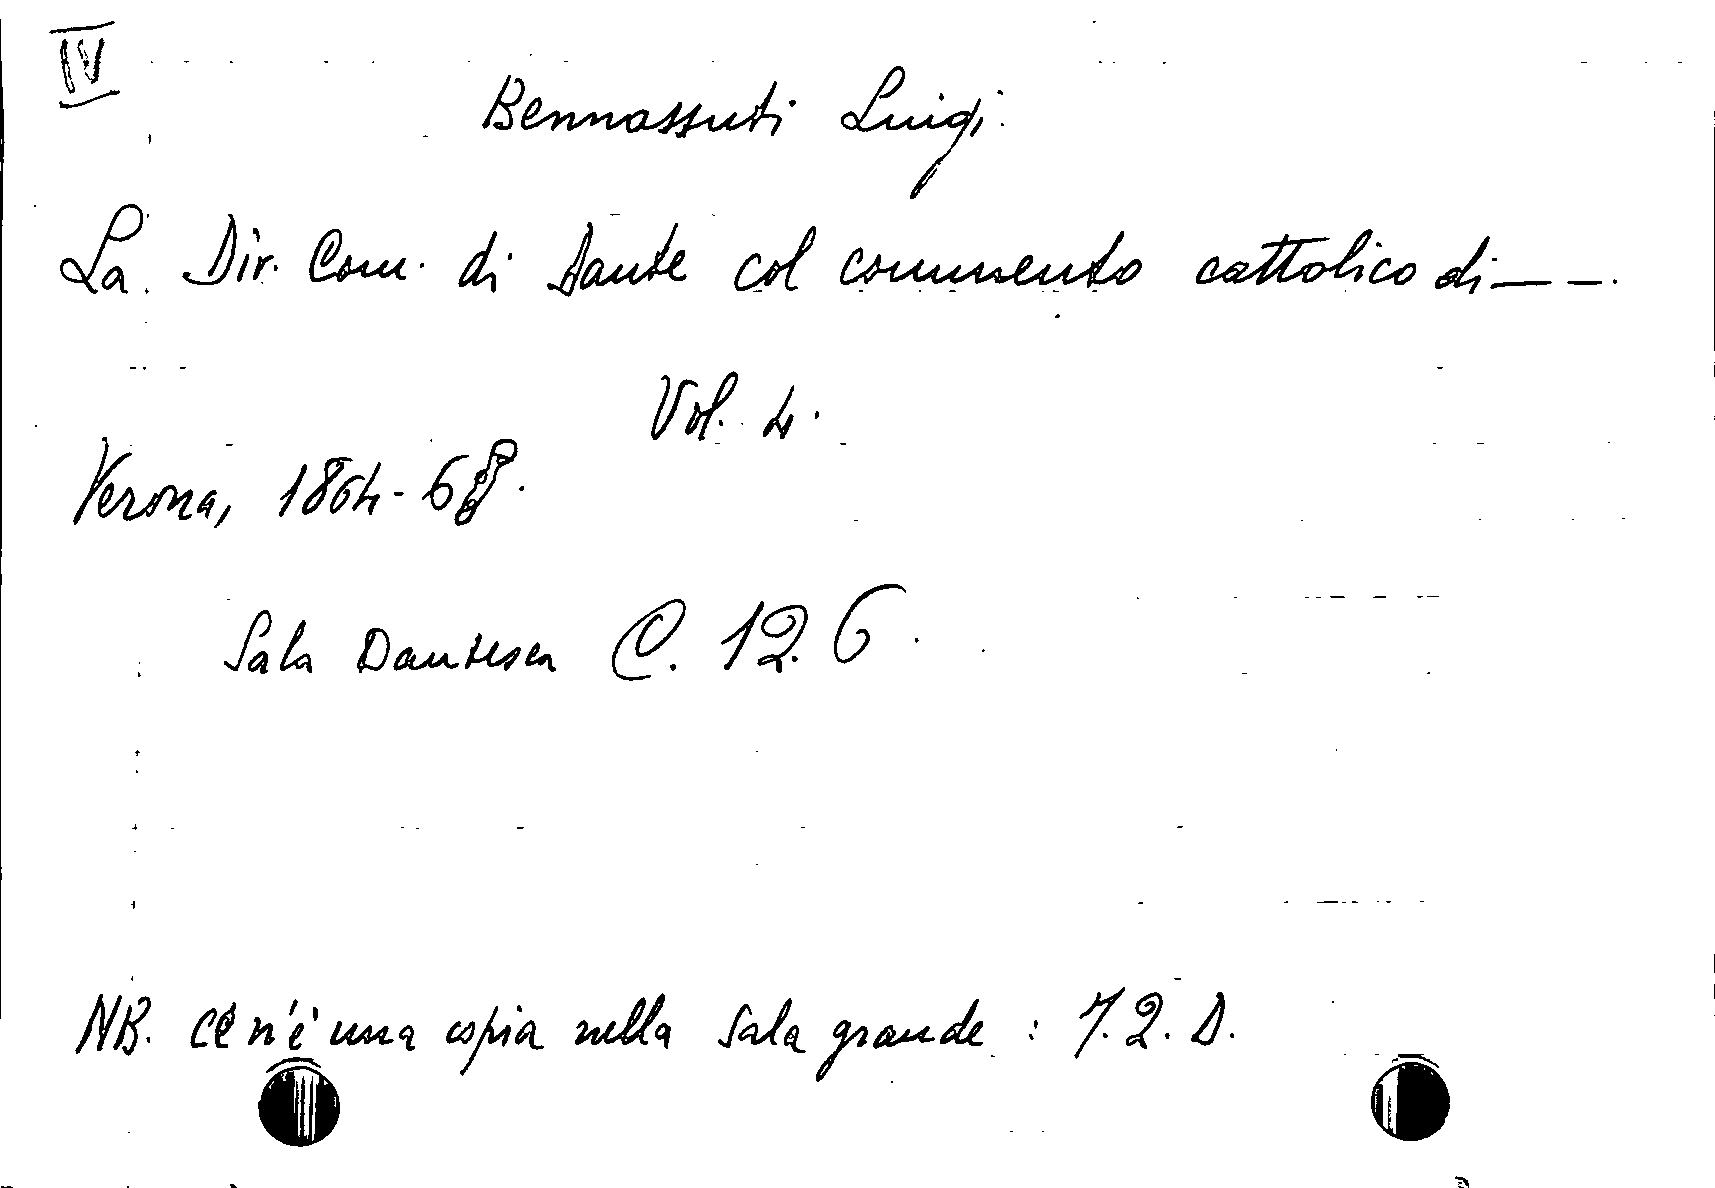 IV
Bennassuti Luigi.
La Div. Com. di Dante col commento cattolico di — —.
Vol. 4.
Verona, 1864-68.
Sala Dantesca C. 12. 6.
NB. Ce n'è una copia nella Sala grande : 7. 2. D.